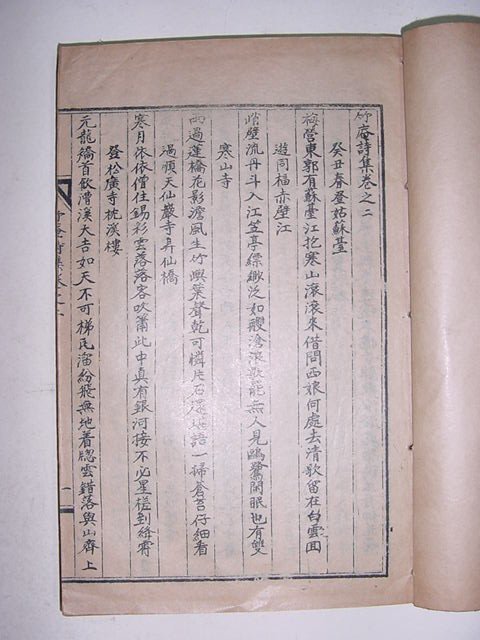 竹庵詩集卷之二
癸丑春登姑蘇臺
梅營東郭有蘇臺江抱寒山滾滾來借問西娘何處去清歌留在白雲回
遊同福赤壁江
峭壁流丹斗入江笠亭縹緲泛如艭滄浪歌罷無人見鷗鷺閑眠也有雙
寒山寺
雨過蓮橋花影澹風生竹輿葉聲乾可憐片石還堪語一掃蒼苔仔細看
過順天仙巖寺昇仙橋
寒月依依僧住錫彩雲落落客吹簫此中真有銀河接不必星槎到絳霄
登松廣寺枕溪樓
元龍矯首飲漕溪大吉如天不可梯瓦溜紛飛無地着牕雲錯落與山齊上
竹庵詩集卷之二
一